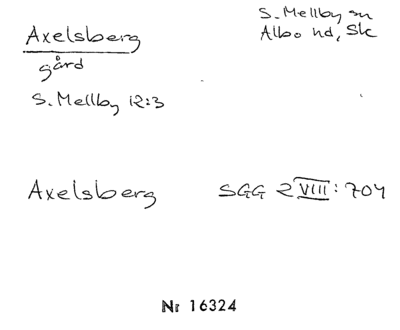 Axelsberg
gård
S. Mellby 12:3
S. Mellby sn
Albo hd, Sk
Axelsberg SGG 2 VIII: 704
Nr 16324